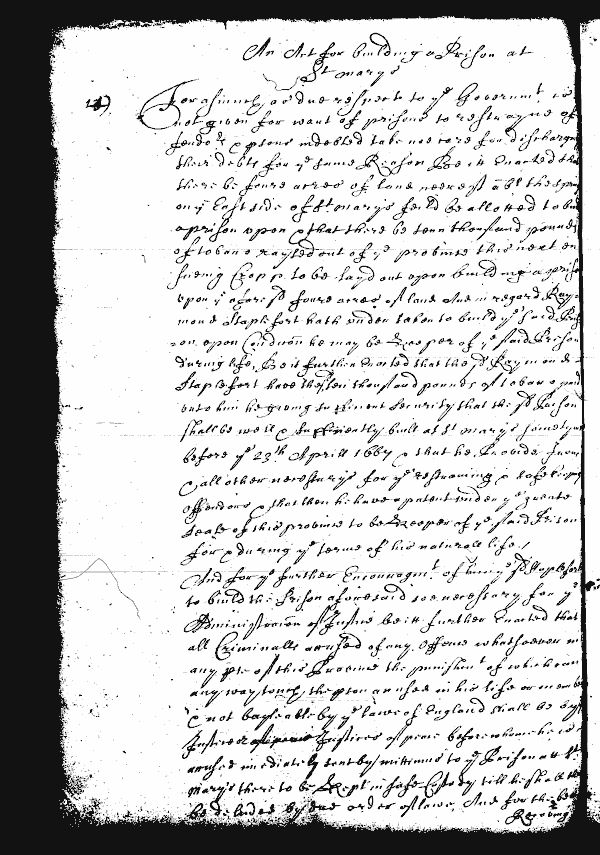 An Act for building a Prison at
St maryes
Forasmuch as due respect to ye Governmt is
not given for want of prisons to restrayne of
fendrs & psons indebted take noe care for dischargeing
their debts for ye same Reason Bee it Enacted that
there be foure acres of land neerest the
on ye East side of St maryes feild be allotted to build
a prison upon & that there be tenn thousand pounds
of tobaco raysed out of ye province this next en
sueing Cropp to be layd out upon building a prison
upon ye aforesd foure acres of land And in regard Ray
mond Staplefort hath undertaken to build ye said Pris
on upon Condicon he may be Keeper of ye said Prison
during life, Be it further Enacted that the sd Raymond
Staplefort have the sd ten thousand pounds of tobaco paid
unto him he giveing sufficient Security that the sd Prison
shall be well & sufficiently built at St maryes sometyme
before ye 23th Aprill 1667 & that he Provide Irons
& all other necessaryes for ye restraining & safe keeping
offendors & that then he have a patent under ye greate
seale of this province to be Keeper of ye said Prison
for & during ye terme of his naturall life /
And for ye further Encouragmt of him ye sd Staplefort
to build the Prison aforesaid soe necessary for ye
Administracon of Justice be it further Enacted that
all Criminalls accused of any Offence whatsoever in
any pte of this Province the punishmt of which can
any way touch the pson accused in his life or member
& not bayleable by ye lawe of England shall be by ye
Justices of peace before whome he is
accused imediately sent by mittimus to ye Prison att St
maryes there to be Kept in safe Custody till he shall
be delivered by due order of lawe, And for the better